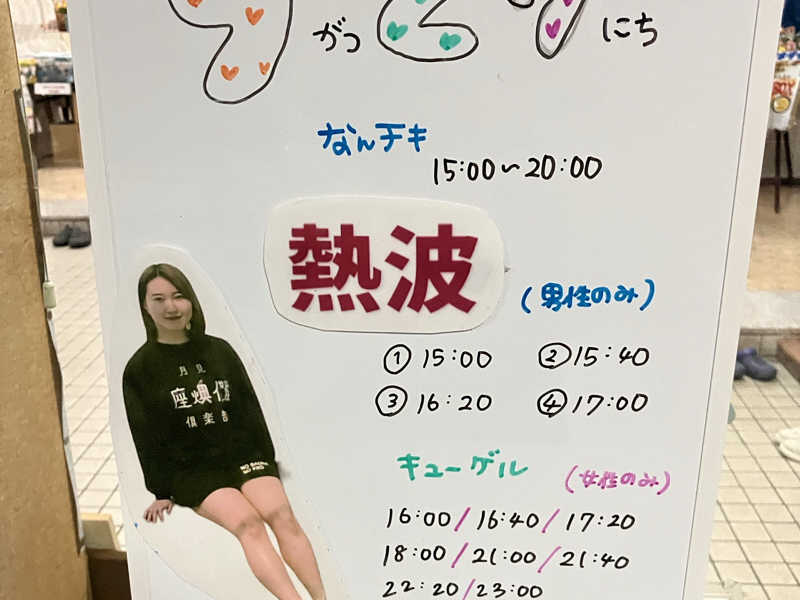 がつ にち
なんチキ
15:00~20:00
熱波
(男性のみ)
① 15:00 ② 15:40
③ 16:20 ④ 17:00
キューゲル (女性のみ)
16:00/16:40/17:20
18:00/21:00/21:40
22:20/23:00
月見
倶楽部